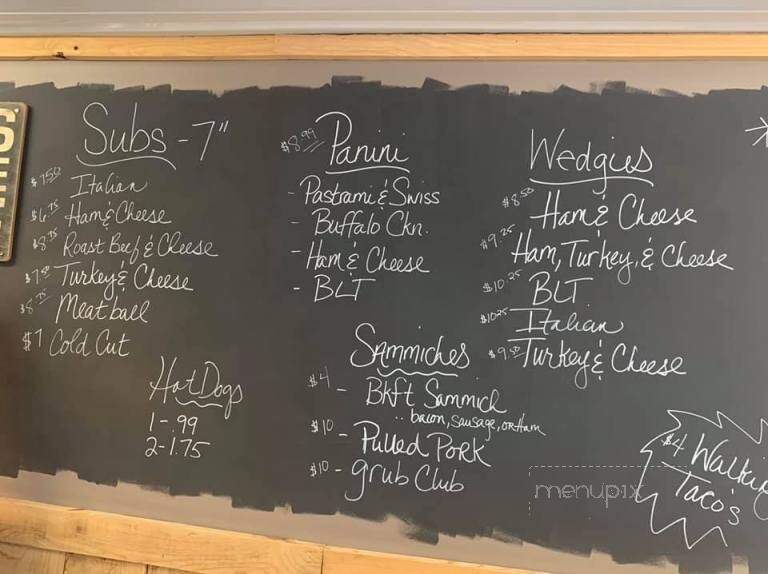 Subs - 7"
$7.50 Italian
$6.75 Ham & Cheese
$8.75 Roast Beef & Cheese
$7.50 Turkey & Cheese
$8.75 Meatball
$7 Cold Cut
Hot Dogs
1 - .99
2 - 1.75
$8.99 Panini
- Pastrami & Swiss
- Buffalo Ckn.
- Ham & Cheese
- BLT
Sammiches
$4 - Bkft Sammich
.. bacon, sausage, or Ham
$10 - Pulled Pork
$10 - grub Club
Wedgies
$8.50 Ham & Cheese
$9.25 Ham, Turkey, & Cheese
$10.25 BLT
$10.25 Italian
$9.50 Turkey & Cheese
$4 Walking
Taco's
menupix